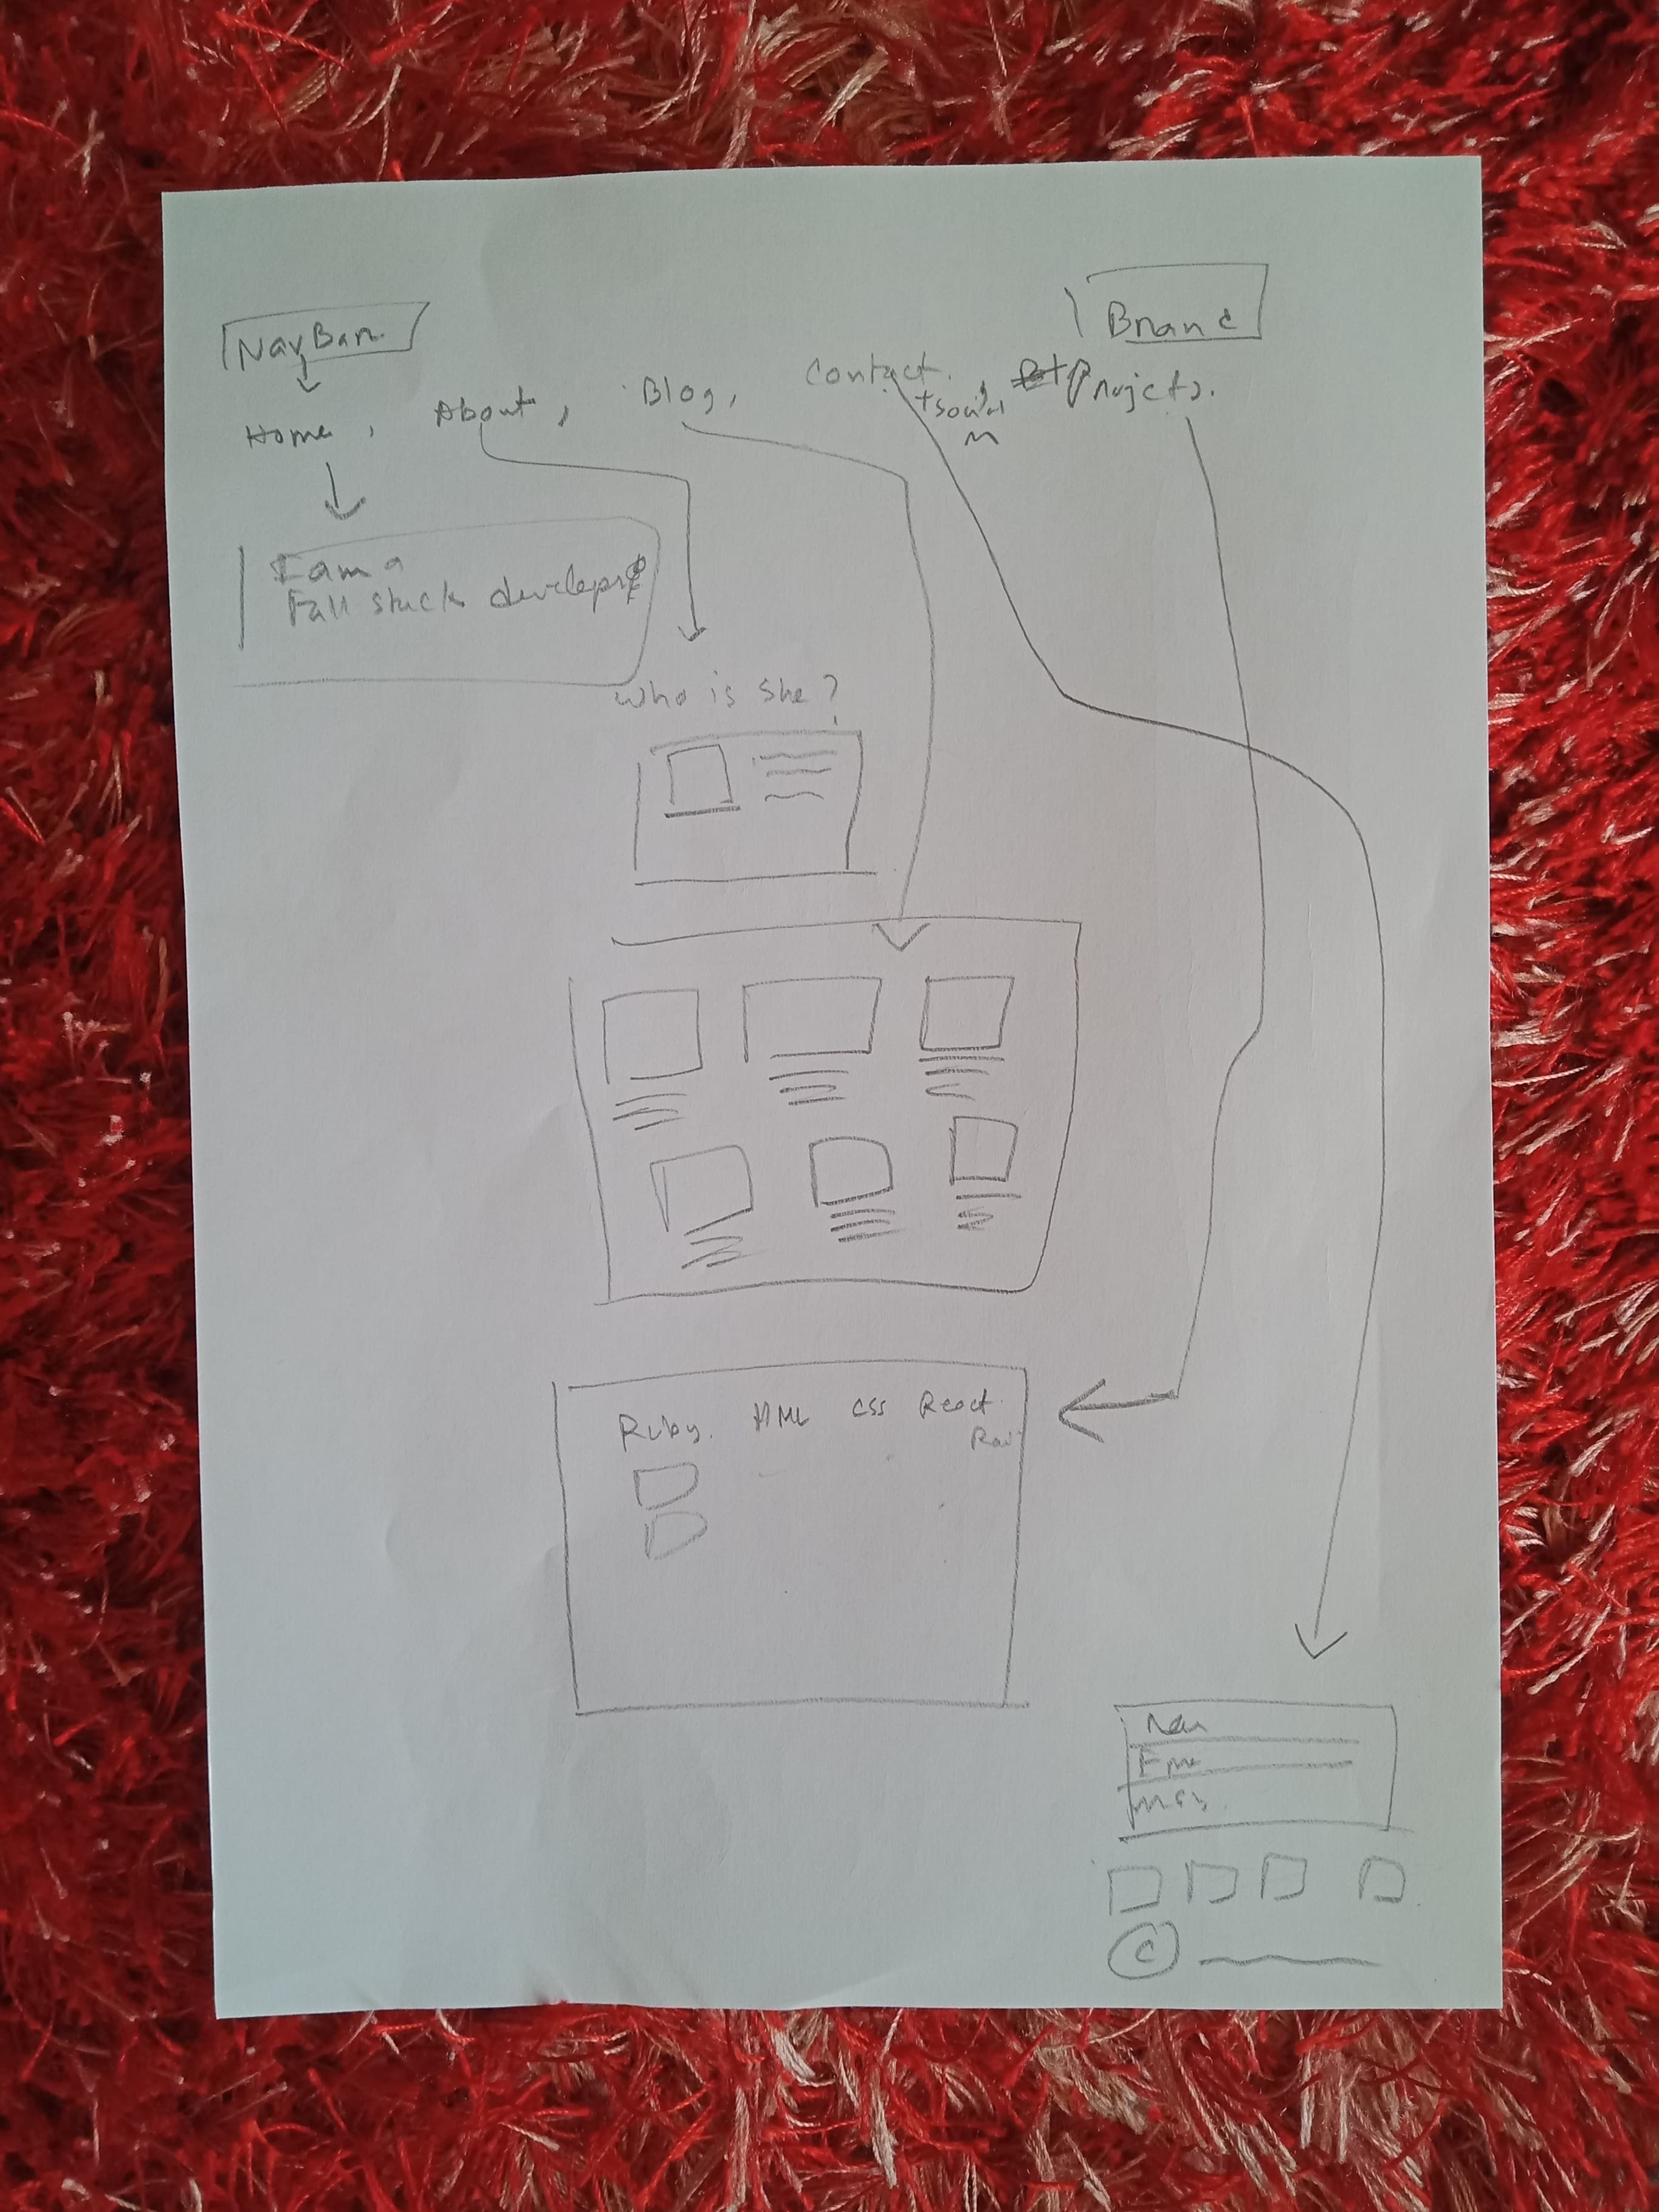 NavBar
Brand
Home, About, Blog, Contact, Projects.
+ Social
m
I am a
Full stack developer
Who is She?
Ruby. HTML CSS React
Rai
Nam
Ema
msg.
©